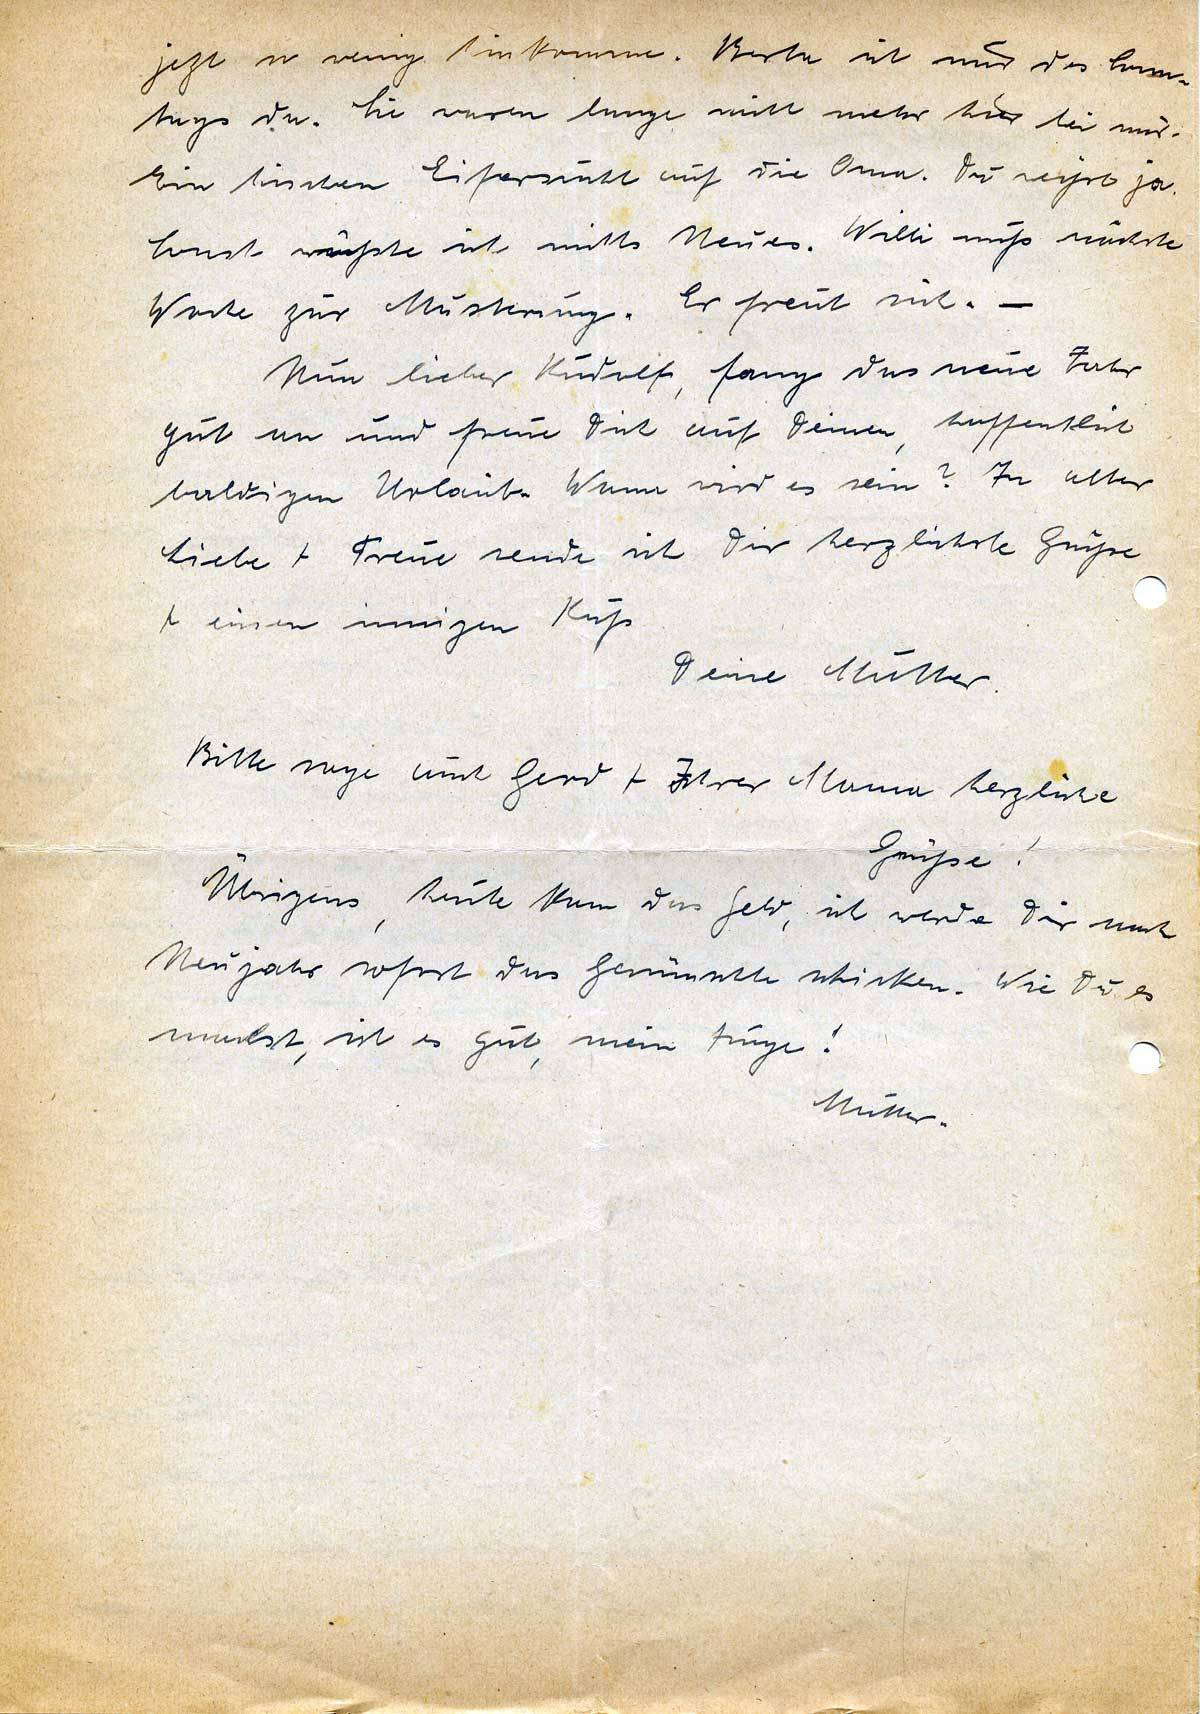 jetzt so wenig hinkomme. Berta ist nur des Sonn-
tags da. Sie waren lange nicht mehr hier bei mir.
Ein bischen Eifersucht auf die Oma. Du weißt ja.
Sonst wüßte ich nichts Neues. Willi muß nächste
Woche zur Musterung. Er freut sich. —
Nun lieber Rudolf, fang das neue Jahr
gut an und freue Dich auf Deinen, hoffentlich
baldigen Urlaub. Wann wird es sein? In alter
Liebe + Treue sende ich Dir herzlichste Grüße
+ einen innigen Kuß
Deine Mutter.
Bitte sage auch Gerd + Ihrer Mama herzliche
Grüße!
Übrigens, heute kam das Geld, ich werde Dir nach
Neujahr sofort das Gewünschte schicken. Wie Du es
machst, ist es gut, mein Junge!
Mutter.